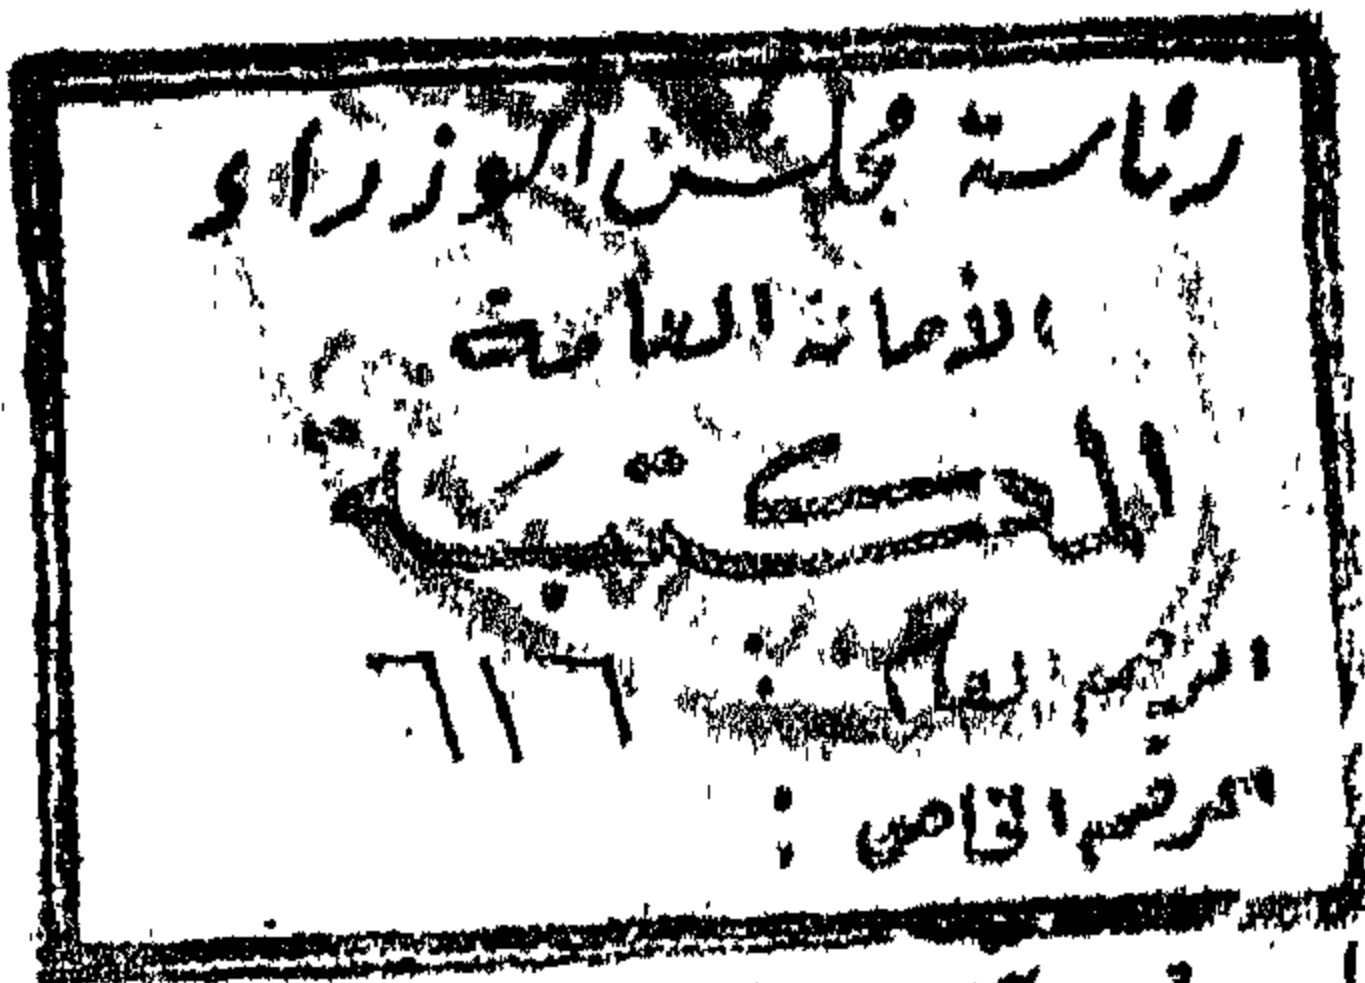 رئاسة مجلس الوزراء
الأمانة العامة
المكتبة
الرقم العام : ٦١٦
الرقم الخاص :